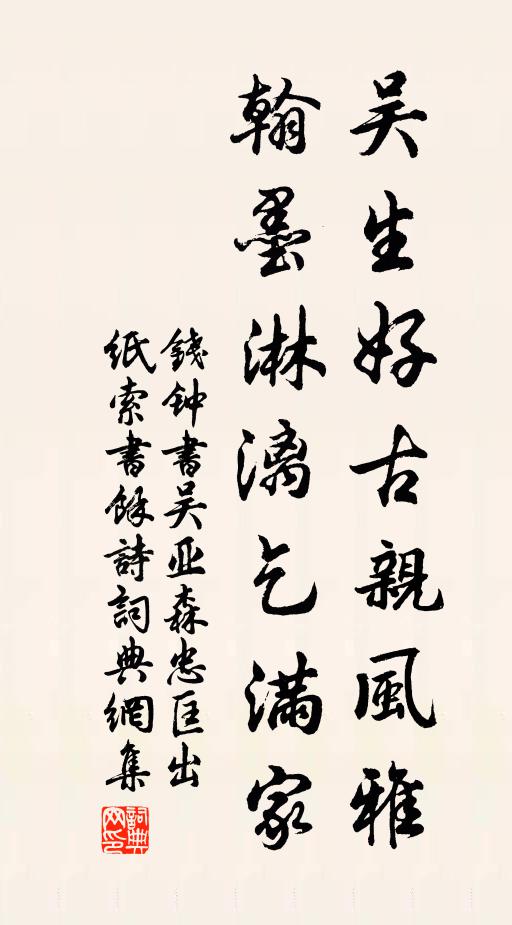 吴生好古親風雅
翰墨淋漓乞满家
錢钟書吴亚森忠匡出
纸索書餘詩詞典網集
詞典網印